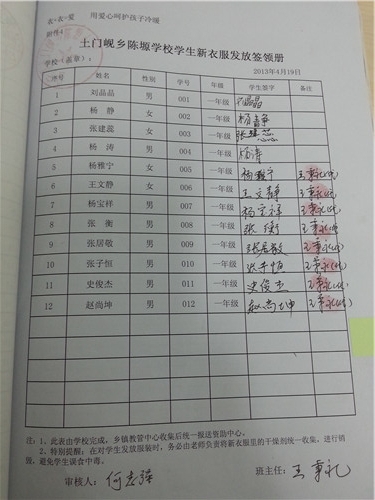 衣·衣·爱 用爱心呵护孩子冷暖
附件4
土门岘乡陈塬学校学生新衣服发放签领册
学校(盖章): 2013年4月19日
序号 姓名 性别 学号 年级 学生签字 备注
1 刘晶晶 男 001 一年级 刘晶晶
2 杨静 女 002 一年级 杨静
3 张建蕊 女 003 一年级 张建蕊
4 杨涛 男 004 一年级 杨涛
5 杨雅宁 女 005 一年级 杨雅宁
6 王文静 女 006 一年级 王文静
7 杨宝祥 男 007 一年级 杨宝祥
8 张衡 男 008 一年级 张衡
9 张居敬 男 009 一年级 张居敬
10 张子恒 男 010 一年级 张子恒
11 史俊杰 男 011 一年级 史俊杰
12 赵尚坤 男 012 一年级 赵尚坤
注:1,此表由学校完成,乡镇教管中心收集后统一报送资助中心。
2,特别提醒:在对学生发放服装时,务必由老师负责将新衣服里的干燥剂统一收集,进行销
毁,避免学生误食中毒。
审核人: 班主任: